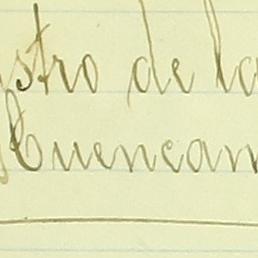 stro de la
Cuencam